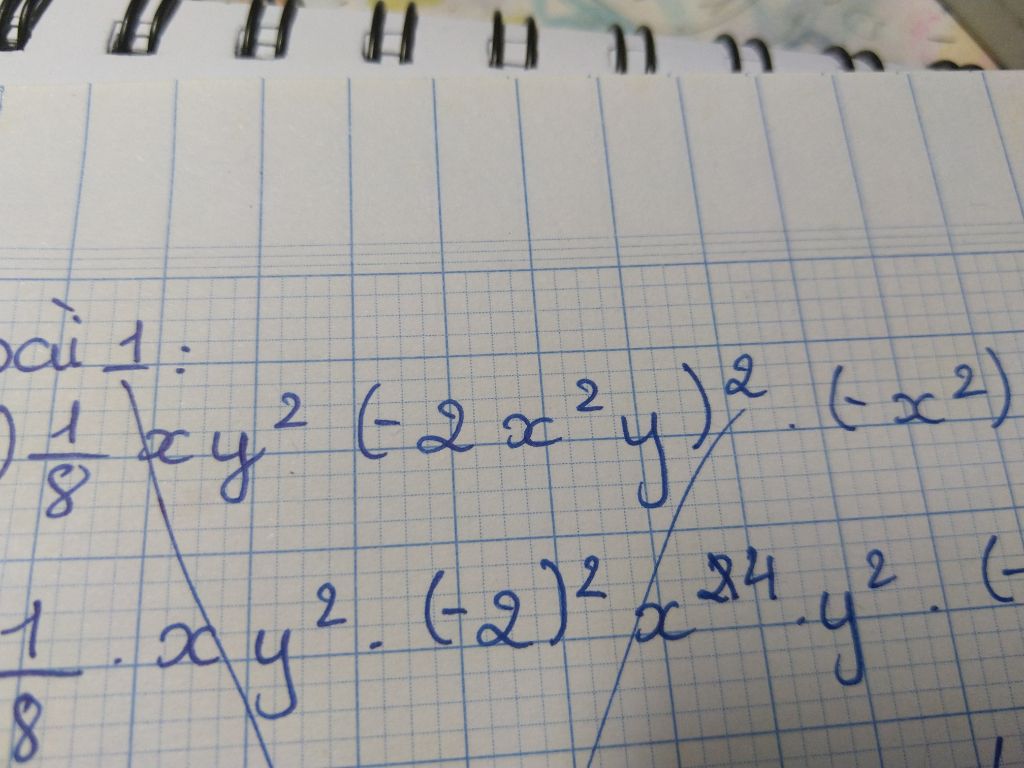 bài 1:
) 1/8 xy² (-2x²y)² . (-x²)
1/8 . xy² . (-2)² x⁴ . y² . (-